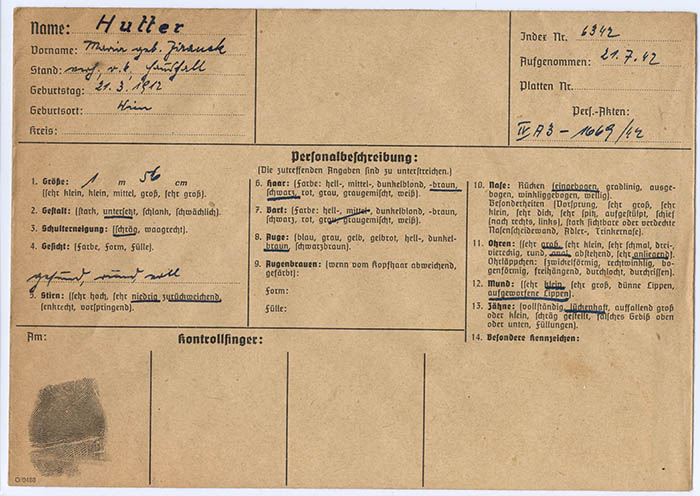 Name: Hutter
Vorname: Maria geb.
Stand: verh., r.k.,
Geburtstag: 21.3.1912
Geburtsort: Wien
Kreis:
Index Nr. 6342
Aufgenommen: 21.7.42
Platten Nr.
Pers.-Akten:
IV A 3 – 1669/42
Personalbeschreibung:
(Die zutreffenden Angaben sind zu unterstreichen.)
1. Größe: 1 m 56 cm
(sehr klein, klein, mittel, groß, sehr groß).
2. Gestalt: (stark, untersetzt, schlank, schwächlich).
3. Schulterneigung: (schräg, waagrecht).
4. Gesicht: (Farbe, Form, Fülle).
gesund, rund voll
5. Stirn: (sehr hoch, sehr niedrig zurückweichend,
senkrecht, vorspringend).
6. Haar: (Farbe: hell-, mittel-, dunkelblond, -braun,
schwarz, rot, grau, graugemischt, weiß).
7. Bart: (Farbe: hell-, mittel-, dunkelblond, -braun,
schwarz, rot, grau, graugemischt, weiß).
8. Auge: (blau, grau, gelb, gelbrot, hell-, dunkel-
braun, schwarzbraun).
9. Augenbrauen: (wenn vom Kopfhaar abweichend,
gefärbt):
Form:
Fülle:
10. Nase: Rücken (eingebogen, gradlinig, ausge-
bogen, winkliggebogen, wellig).
Besonderheiten (Vorsprung, sehr groß, sehr
klein, sehr dick, sehr spitz, aufgestülpt, schief
(nach rechts, links), stark sichtbar oder verdeckte
Nasenscheidewand, Adler-, Trinkernase).
11. Ohren: (sehr groß, sehr klein, sehr schmal, drei-
viereckig, rund, oval, abstehend, sehr anliegend).
Ohrläppchen: (zwickelförmig, rechtwinklig, bo-
genförmig, freihängend, durchlocht, durchrissen).
12. Mund: (sehr klein, sehr groß, dünne Lippen,
aufgeworfene Lippen)
13. Zähne: (vollständig, lückenhaft, auffallend groß
oder klein, schräg gestellt, falsches Gebiß oben
oder unten, Füllungen).
14. Besondere Kennzeichen:
Am:
Kontrollfinger: